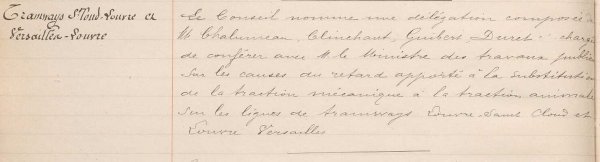 Tramways St Cloud-Louvre et
Versailles-Louvre
Le Conseil nomme une délégation composée de
M Chalumeau, Clinchant, Guibert Duret chargée
de conférer avec M. le Ministre des travaux publics
sur les causes du retard apporté à la substitution
de la traction mécanique à la traction animale
sur les lignes de tramways Louvre-Saint Cloud et
Louvre Versailles